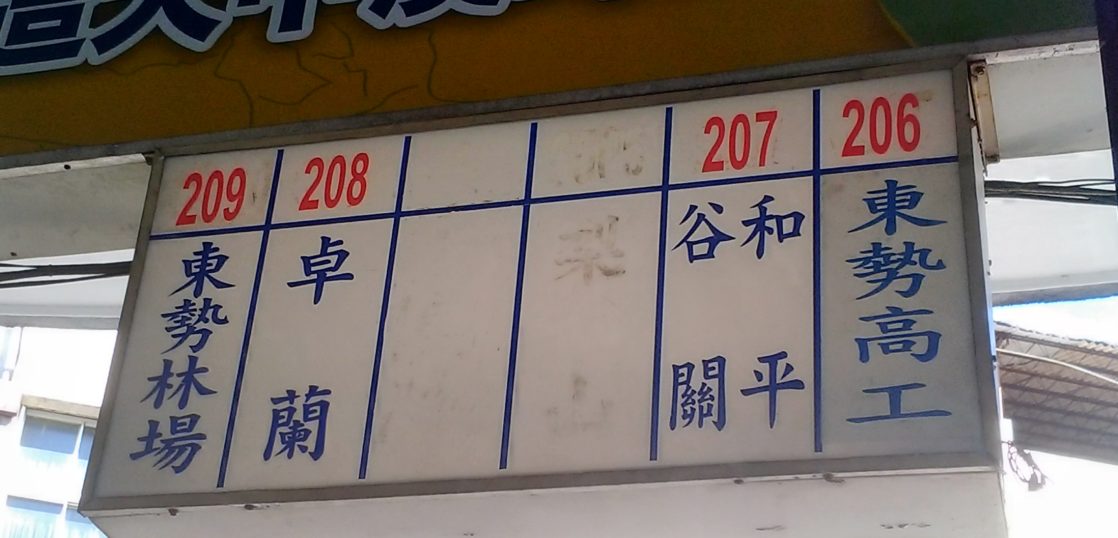 206
東勢高工
207
和平
谷關
208
卓蘭
209
東勢林場